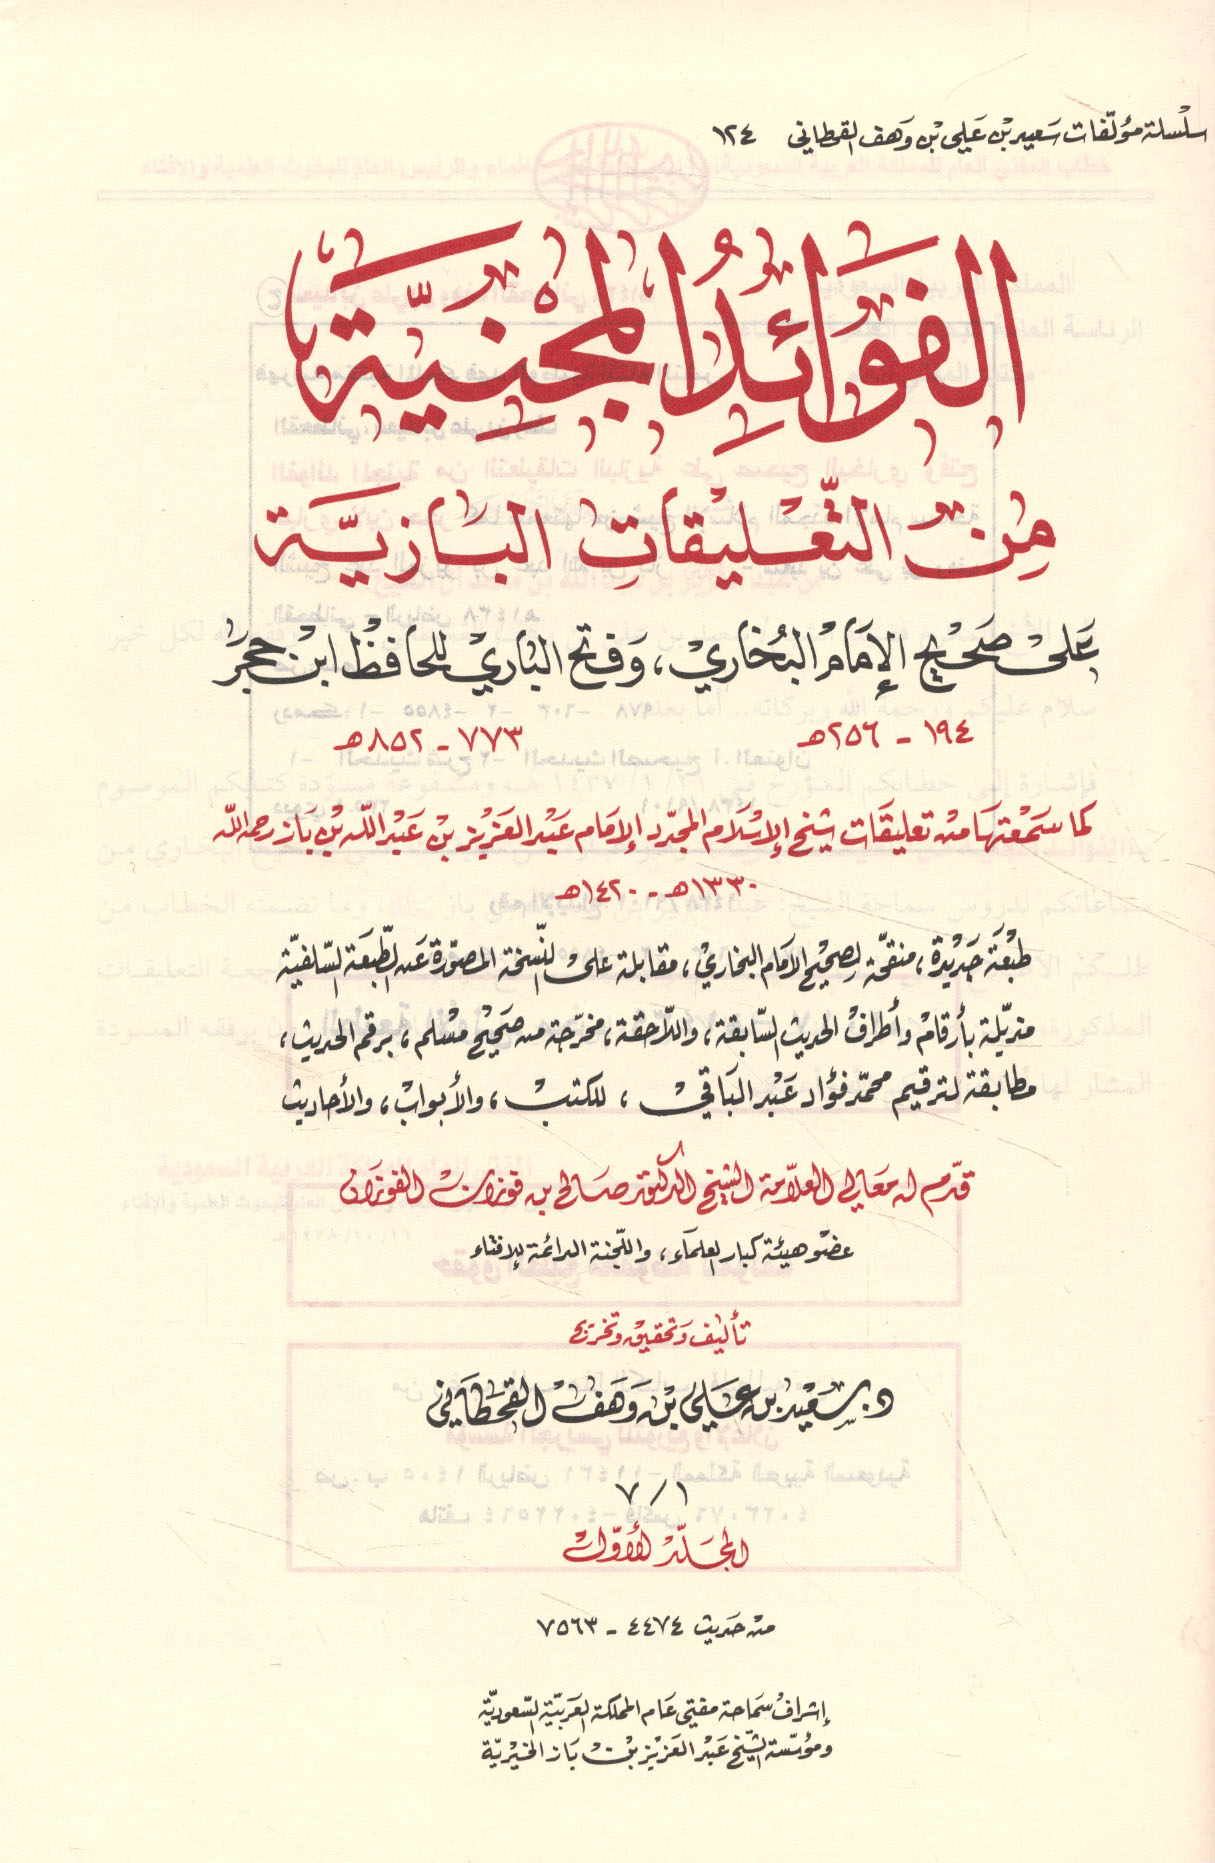 سلسلة مؤلفات سعيد بن علي بن وهف القحطاني ١٢٤
الفَوَائِدُ المَجْنِيَّة
مِنَ التَّعْلِيقَاتِ البَازِيَّة
عَلَى صَحِيْحِ الإِمَامْ البُخَارِيْ، وَفَتْحِ البَارِيْ لِلْحَافِظْ ابْن حَجَرْ
١٩٤ - ٢٥٦هـ ٧٧٣ - ٨٥٢هـ
كما سَمِعْتها من تعليقَات شيْخ الإسْلَام المجدّد الإمَام عَبْد العَزيْز بْن عَبْد اللّه بْن بَاز رحمه اللّه
١٣٣٠هـ - ١٤٢٠هـ
طبْعَة جَديْدة، منقحّة لِصَحيْح الإمَام البخاريْ، مقابلة علىْ النّسْخة المصوّرة عَن الطّبعَة السّلفيّة
مذيّلة بأرقامْ وأطرافْ الحديث السّابقة، واللّاحقة، مخرّجة من صَحيْح مسْلم، برقم الحديث،
مطابقة لترقيم محمّد فؤاد عَبْد البَاقيْ، للكتبْ، والأبوابْ، والأحاديث
قدّم له معَالي العلاّمة الشيْخ الدكتور صَالح بن فوزان الفوزان
عضو هيئة كبار العلمَاء، واللّجنة الدائمة للإفتاء
تأليف وَتحقيق وتخريج
د. سَعِيْد بن عَلِي بْن وَهَفْ القَحْطَانِي
١ / ٧
المجَلّد الأوّل
من حَديث ٤٤٧٤ - ٧٥٦٣
إشرافْ سَمَاحة مفتي عَام المملكة العَربيّة السّعوديّة
ومؤسّسة الشّيْخ عَبْد العَزيْز بْن بَاز الخيْريّة